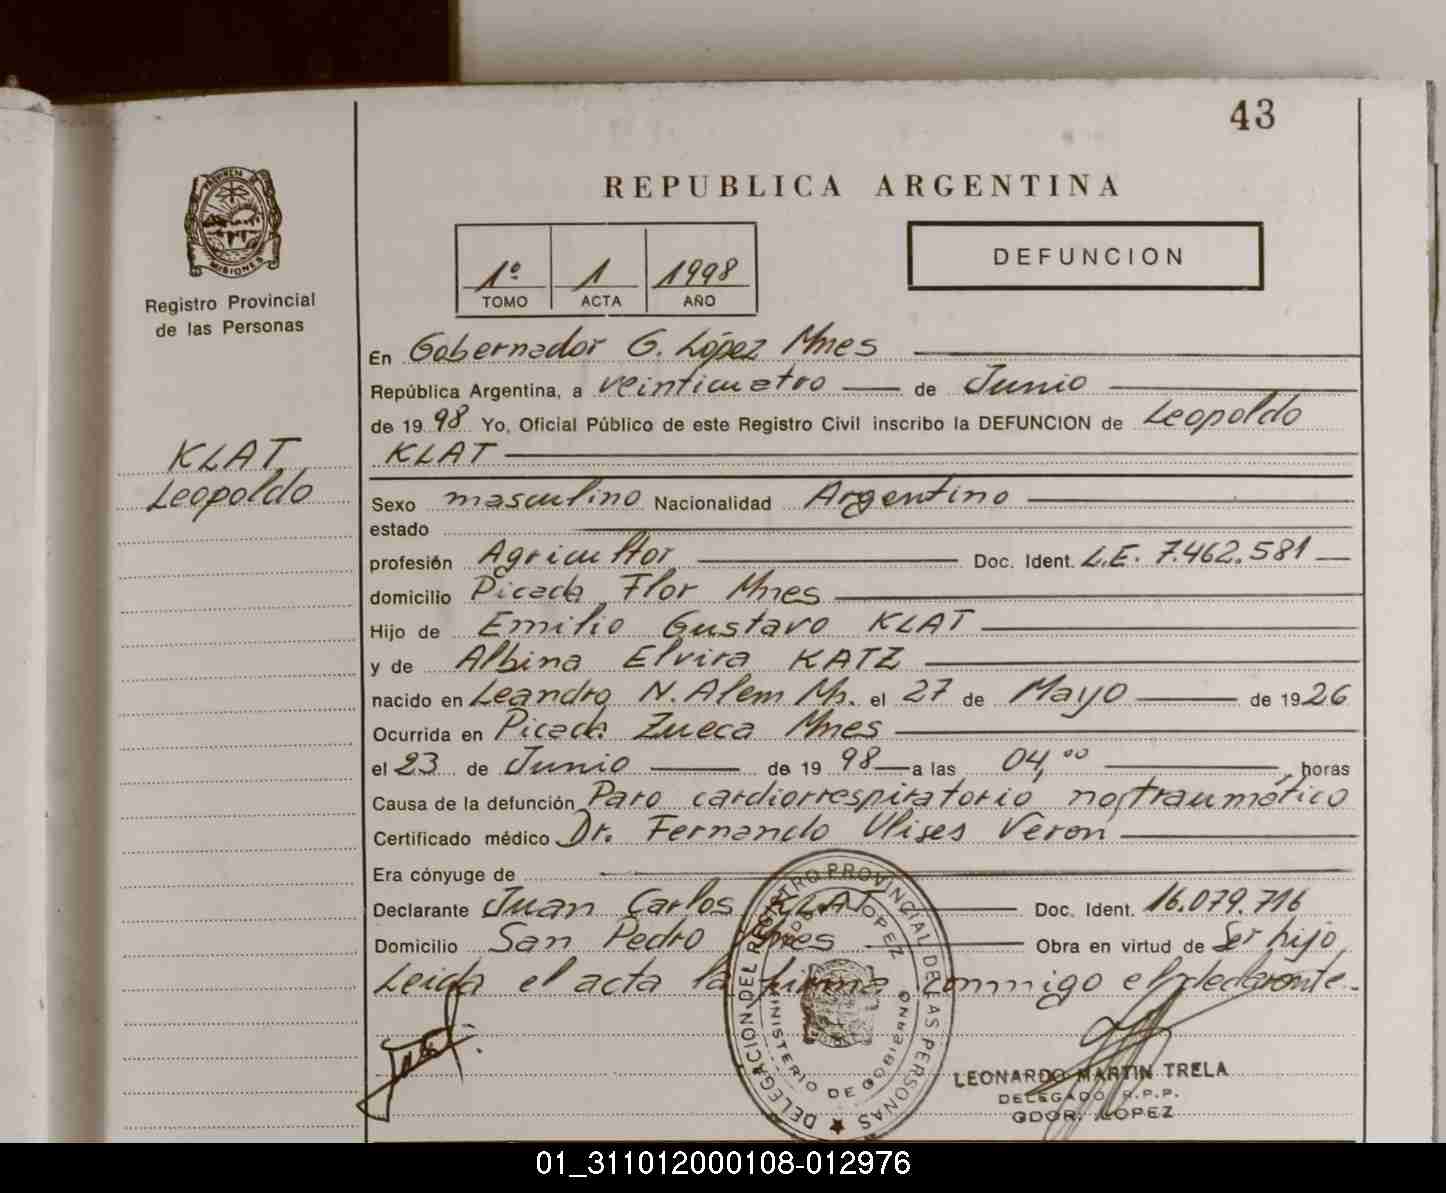 43
PROVINCIA DE
MISIONES
Registro Provincial
de las Personas
REPUBLICA ARGENTINA
1º 1 1998
TOMO ACTA AÑO
DEFUNCION
En Gobernador G. López Mnes
República Argentina, a veinticuatro de Junio
de 1998 Yo, Oficial Público de este Registro Civil inscribo la DEFUNCION de Leopoldo
KLAT
KLAT
Leopoldo
Sexo masculino Nacionalidad Argentino
estado
profesión Agricultor Doc. Ident. L.E. 7.462.581
domicilio Picada Flor Mnes
Hijo de Emilio Gustavo KLAT
y de Albina Elvira KATZ
nacido en Leandro N. Alem Mn. el 27 de Mayo de 1926
Ocurrida en Picada Zueca Mnes
el 23 de Junio de 1998 a las 04,00 horas
Causa de la defunción Paro cardiorrespiratorio no traumático
Certificado médico Dr. Fernando Ulises Veron
Era cónyuge de
Declarante Juan Carlos KLAT Doc. Ident. 16.079.716
Domicilio San Pedro Mnes Obra en virtud de Ser hijo,
Leida el acta la firma conmigo el declarante.
DELEGACION DEL REGISTRO PROVINCIAL DE LAS PERSONAS
LOPEZ
MINISTERIO DE GOBIERNO
LEONARDO MARTIN TRELA
DELEGADO R.P.P.
GDOR. LOPEZ
01_311012000108-012976